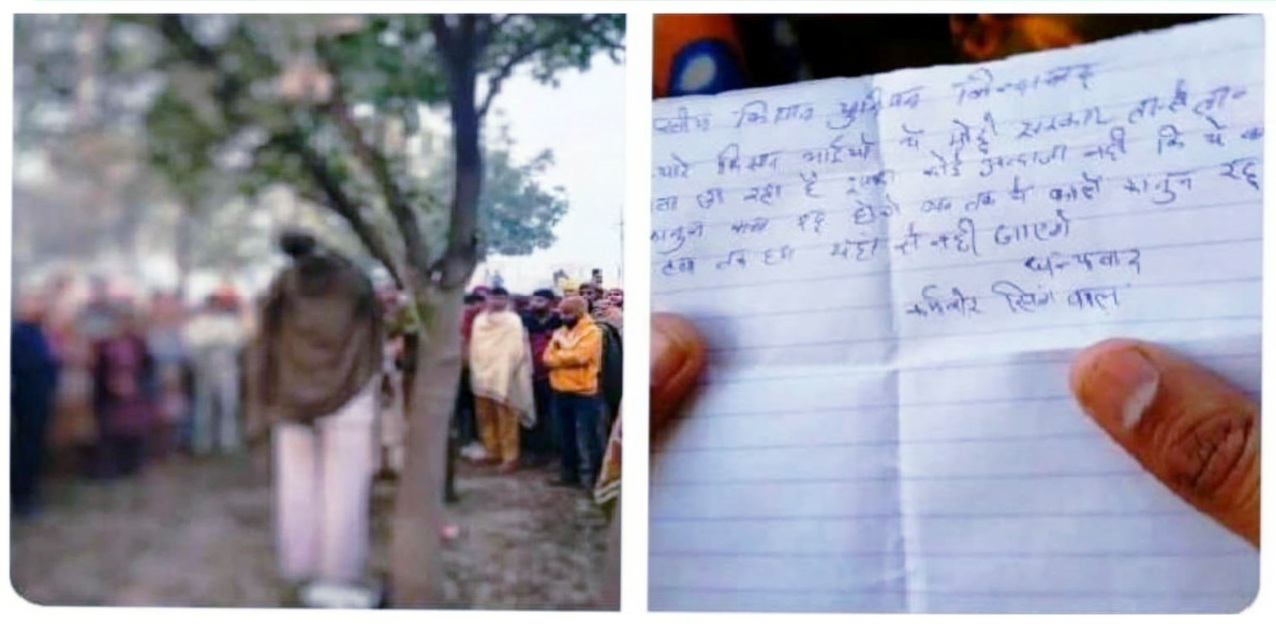 किसान युनियन जिन्दाबाद
प्यारे किसान भाईयो ये मोदी सरकार तारीख
जा रहा है इसका कोई अन्दाजा नही कि ये
कानुन कब रद्द होगे जब तक ये काले कानुन रद्द
तब तक हम यहां से नही जाएगे
धन्यवाद
सिंग